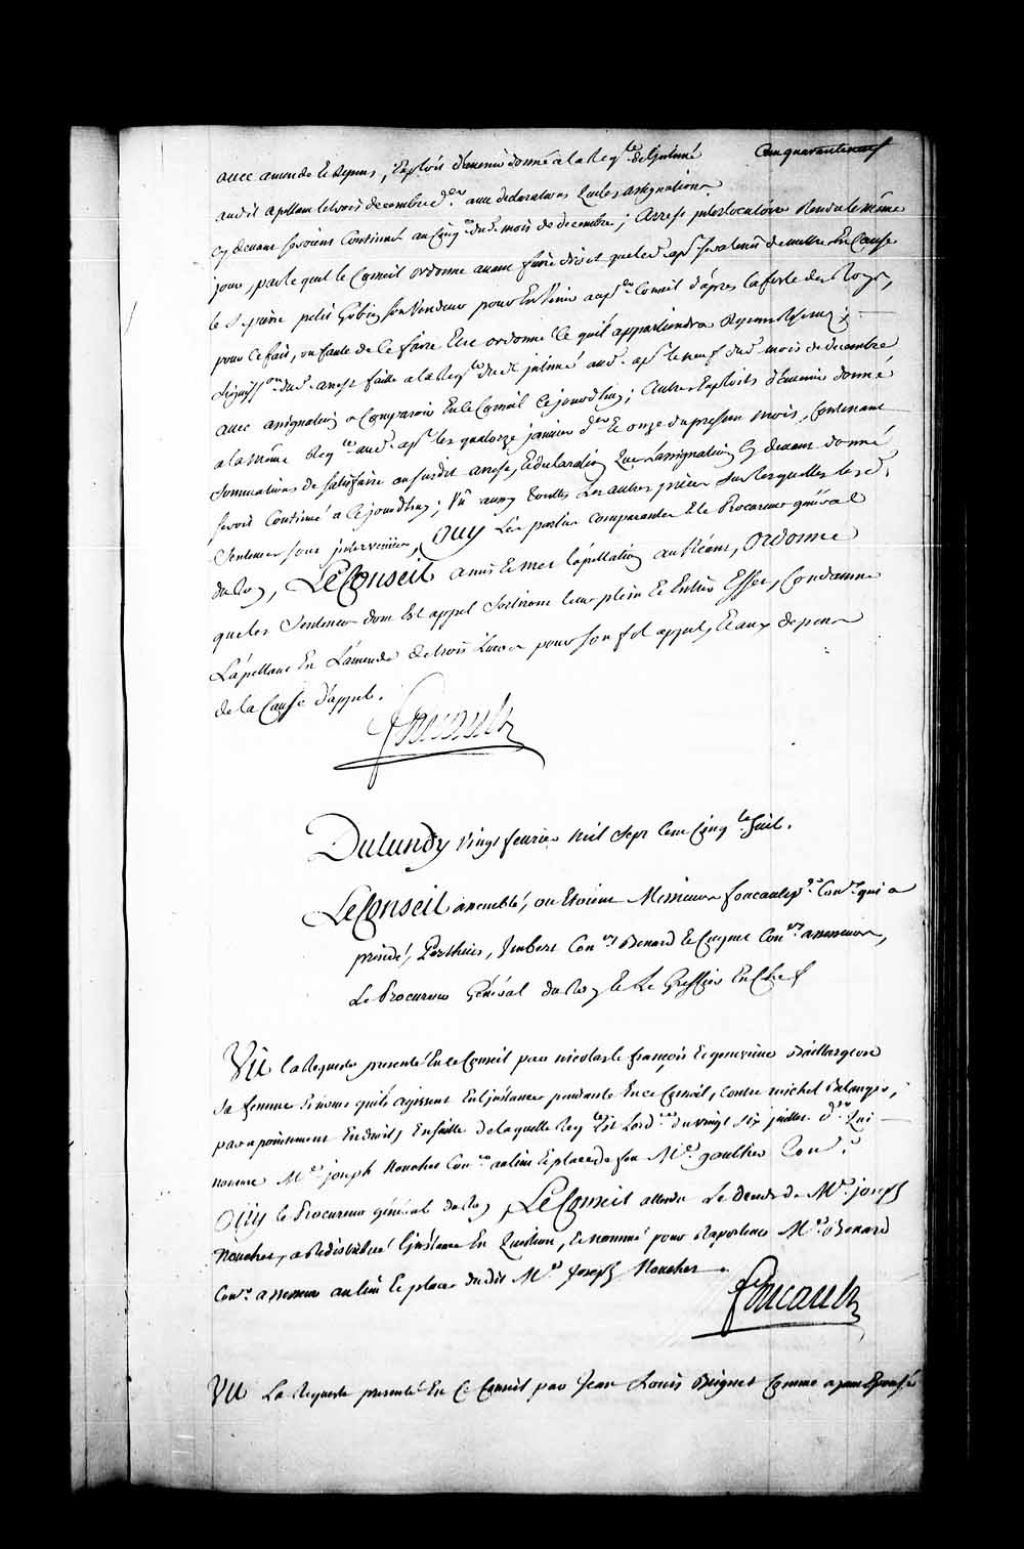 Cinquante neuf
avec amende et depens, Exploit d'avenir donné a la Reqte de l'intimé
audit apellant le trois decembre der avec declaration que les assignations
cy devant seroient Continuées au Cinq dud. mois de decembre; Arrest interlocutoire Rendu le même
jour, par lequel le Conseil ordonne avant faire droit que led. apt sera tenu de mettre En Cause
le Sr pierre petit son Vendeur pour En Venir aud. Conseil d'apres la feste des Roys,
pour Ce fait, ou faute de Ce faire Etre ordonné Ce qu'il appartiendra depens Reservez;
Signiffon dud. arrest faite a la Reqte dud. intimé aud. apt le neuf dud. mois de decembre
avec assignation a Comparoir En le Conseil Ce jourd'huy; Autres Exploits d'avenir donné
a la même Reqte aud. apt les quatorze janvier der Et onze du present mois, Contenant
Sommations de Satisfaire au susdit arrest, Et declaration que L'assignation Cy devant donné
seroit Continué a Ce jourd'huy; Vû aussy toutes Les autres pieces sur lesquelles lesd.
Sentences sont intervenües, OUY Les parties comparantes Et le Procureur général
du Roy, LE Conseil a mis Et met l'apellation au Néant, Ordonne
que les Sentences dont Est appel Sortiront leur plein Et Entier Effet, Condamne
L'apellant En L'amende de trois Livres pour son fol appel, Et aux depens
de la Cause d'appel.
Foucault
Du lundy Vingt feurier mil Sept Cent Cinqte huit.
Le Conseil assemblé, ou Etoient Messieurs foucault pr Coner qui a
présidé, Perthuis, Imbert Coners Benard Et Cugnet Coners assesseurs,
Le Procureur Général du Roy Et Le Greffier En Chef
Vû la Requeste presenté En Ce Conseil par nicolas le françois Et genevieve Baillargeon
sa femme aux noms qu'ils agissent En L'instance pendante En ce Conseil, Contre michel Belanger,
par apointement En droit, Ensuitte de laquelle Reqte Est Lordce du vingt Six juillet der Qui
nomme Mre joseph Nouchet Coner au lieu Et place de feu Mre gaultier Coner
OÜy le Procureur général du Roy, LE Conseil attendu Le deceds de Mre joseph
Nouchet, a Redistribué L'instance En Question, Et nommé pour Raporteur Mre Benard
Coner assesseur au lieu Et place dudit Mre Joseph Nouchet.
Foucault
VU La Requeste presenté En Ce Conseil par Jean Louis Comme ayant Epousé